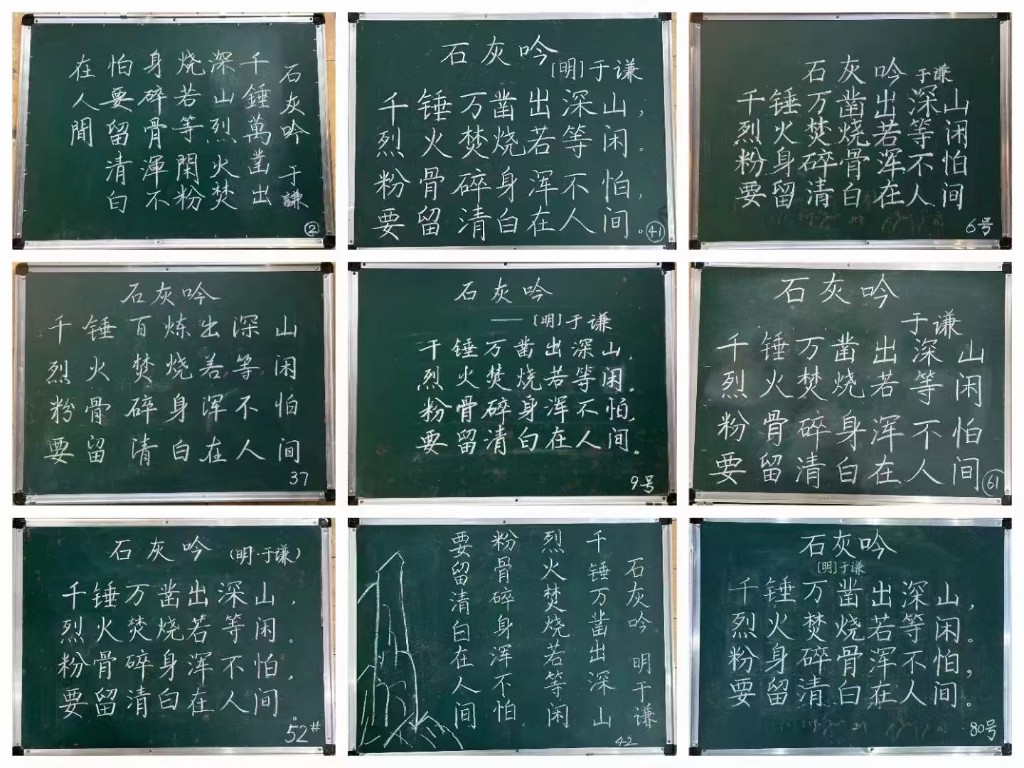 石灰吟 于謙
千錘萬凿出
深山烈火焚
烧若等閑粉
身碎骨渾不
怕要留清白
在人間
②
石灰吟
[明]于谦
千锤万凿出深山，
烈火焚烧若等闲。
粉骨碎身浑不怕，
要留清白在人间。
㊶
石灰吟 于谦
千锤万凿出深山
烈火焚烧若等闲
粉身碎骨浑不怕
要留清白在人间
6号
石灰吟
千锤百炼出深山
烈火焚烧若等闲
粉骨碎身浑不怕
要留清白在人间
37
石灰吟
——[明]于谦
千锤万凿出深山，
烈火焚烧若等闲。
粉骨碎身浑不怕，
要留清白在人间。
9号
石灰吟
于谦
千锤万凿出深山
烈火焚烧若等闲
粉骨碎身浑不怕
要留清白在人间
61
石灰吟 (明·于谦)
千锤万凿出深山，
烈火焚烧若等闲。
粉骨碎身浑不怕，
要留清白在人间。
52#
石灰吟 明于谦
千锤万凿出深山
烈火焚烧若等闲
粉骨碎身浑不怕
要留清白在人间
42
石灰吟
[明]于谦
千锤万凿出深山，
烈火焚烧若等闲。
粉身碎骨浑不怕，
要留清白在人间。
80号